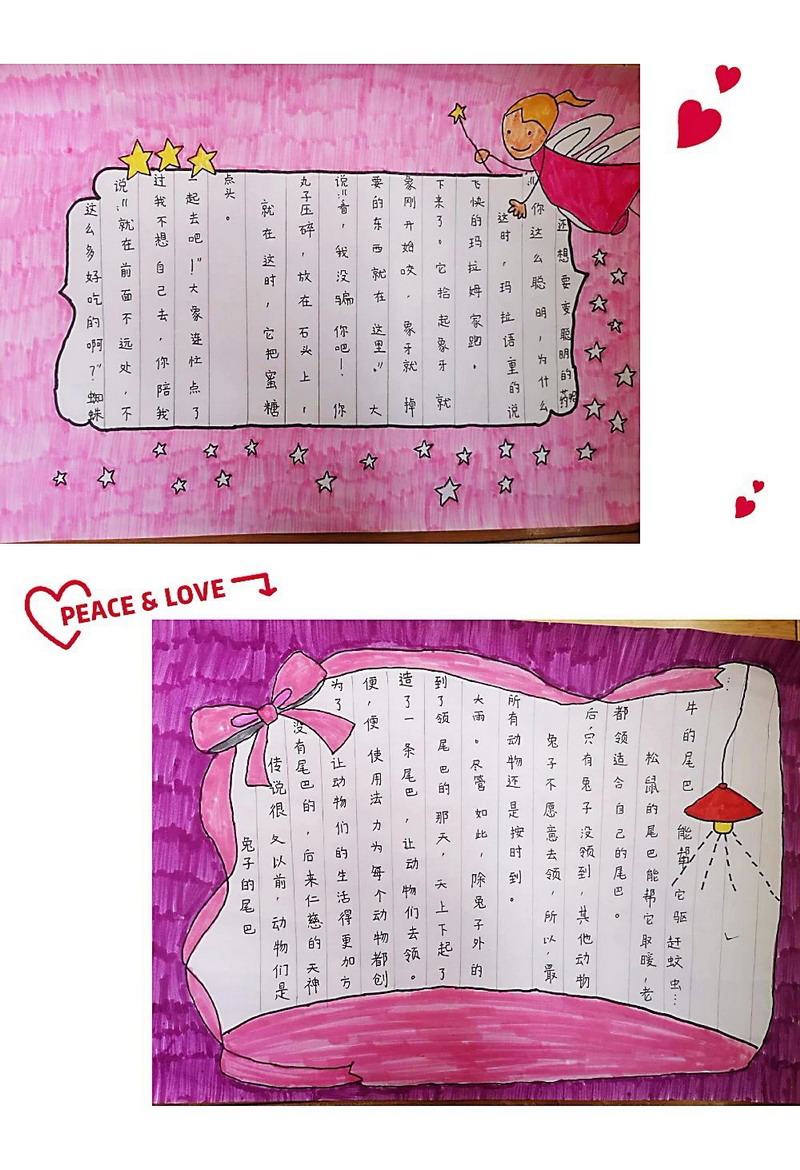 这么多好吃的啊？”蜘蛛
说：“就在前面不远处，不
过我不想自己去，你陪我
一起去吧！”大象连忙点了
点头。
就在这时，它把蜜糖
丸子压碎，放在石头上，
说：“看，我没骗你吧！你
要的东西就在这里。”大
象刚开始咬，象牙就掉
下来了。它拾起象牙就
飞快的玛拉姆家跑。
这时，玛拉语重的说
：“你这么聪明，为什么
还想要变聪明的药呢
PEACE & LOVE
兔子的尾巴
传说很久以前，动物们是
没有尾巴的，后来仁慈的天神
为了让动物们的生活得更加方
便，便使用法力为每个动物都创
造了一条尾巴，让动物们去领。
到了领尾巴的那天，天上下起了
大雨。尽管如此，除兔子外的
所有动物还是按时到。
兔子不愿意去领，所以，最
后，只有兔子没领到，其他动物
都领造合自己的尾巴。
松鼠的尾巴能帮它取暖，老
牛的尾巴能帮它驱赶蚊虫…
…